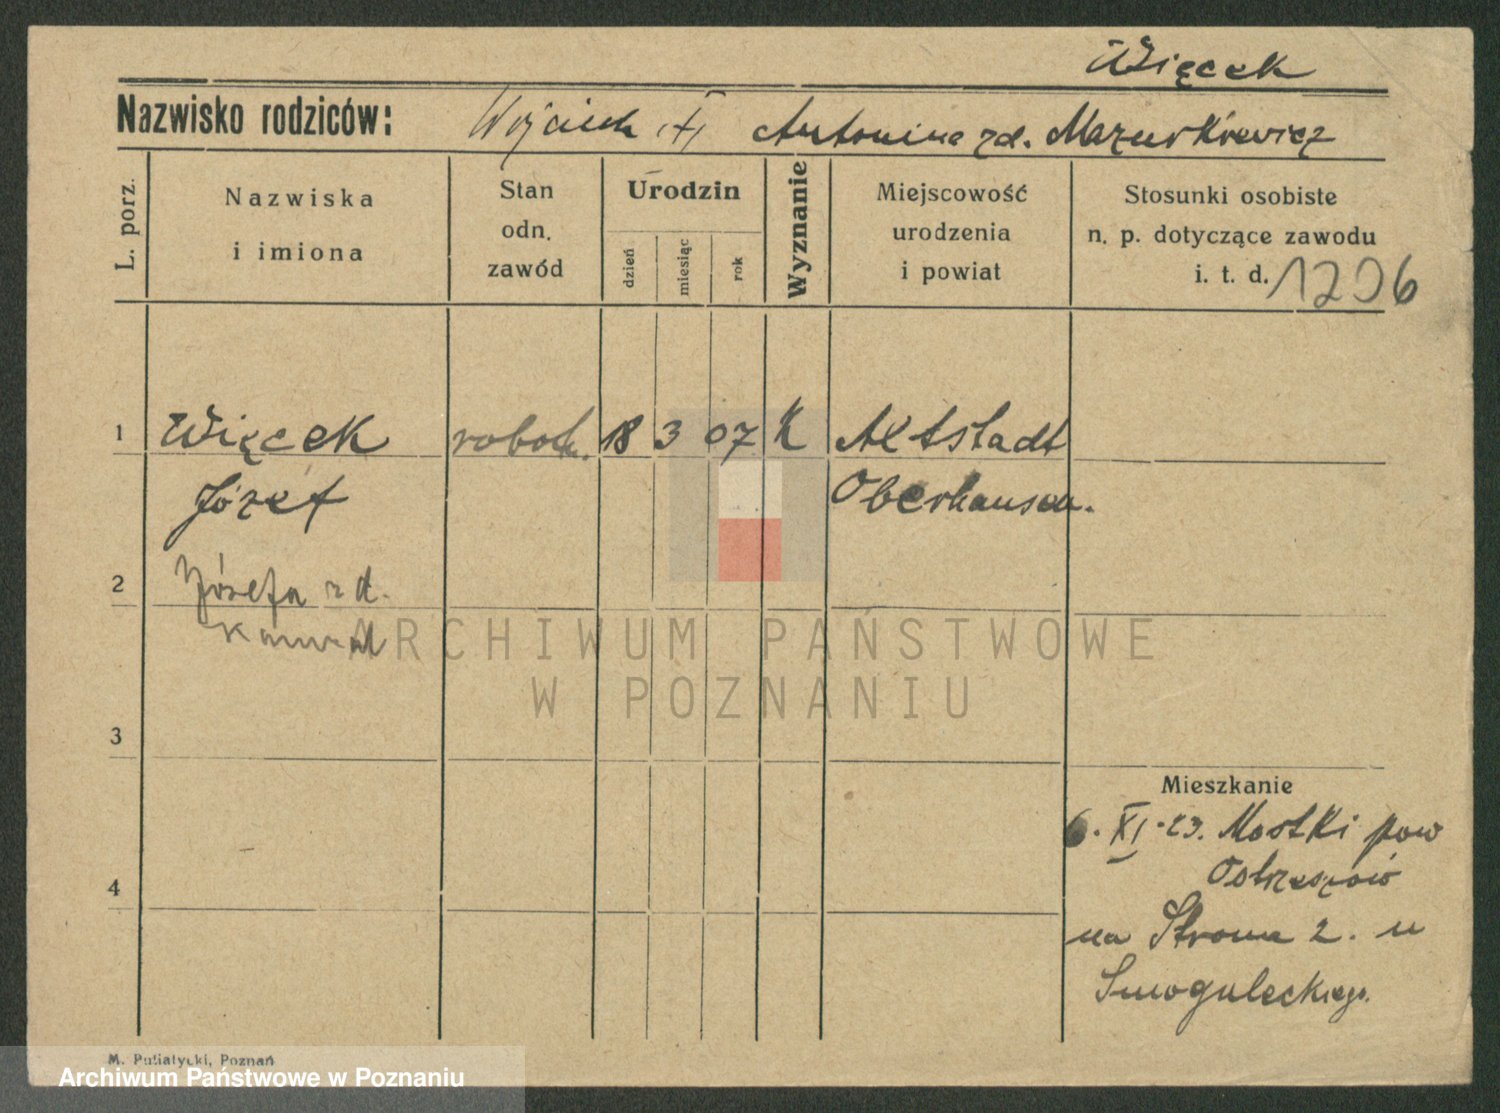 Więcek
Nazwisko rodziców: Wojciech (+) Antonina zd. Mazurkiewicz
L. porz.
Nazwiska
i imiona
Stan
odn.
zawód
Urodzin
dzień
miesiąc
rok
Wyznanie
Miejscowość
urodzenia
i powiat
Stosunki osobiste
n. p. dotyczące zawodu
i. t. d. 1206
1 Więcek robotn. 18 3 07 K Altstadt
Józef Oberhausen.
2 Józefa zd.
ARCHIWUM PAŃSTWOWE
W POZNANIU
3
Mieszkanie
6. XI. 23. Mostki pow
4 Ostrzeszów
na Stroma 2. u
Smoguleckiego.
M. Putiatycki, Poznań
Archiwum Państwowe w Poznaniu